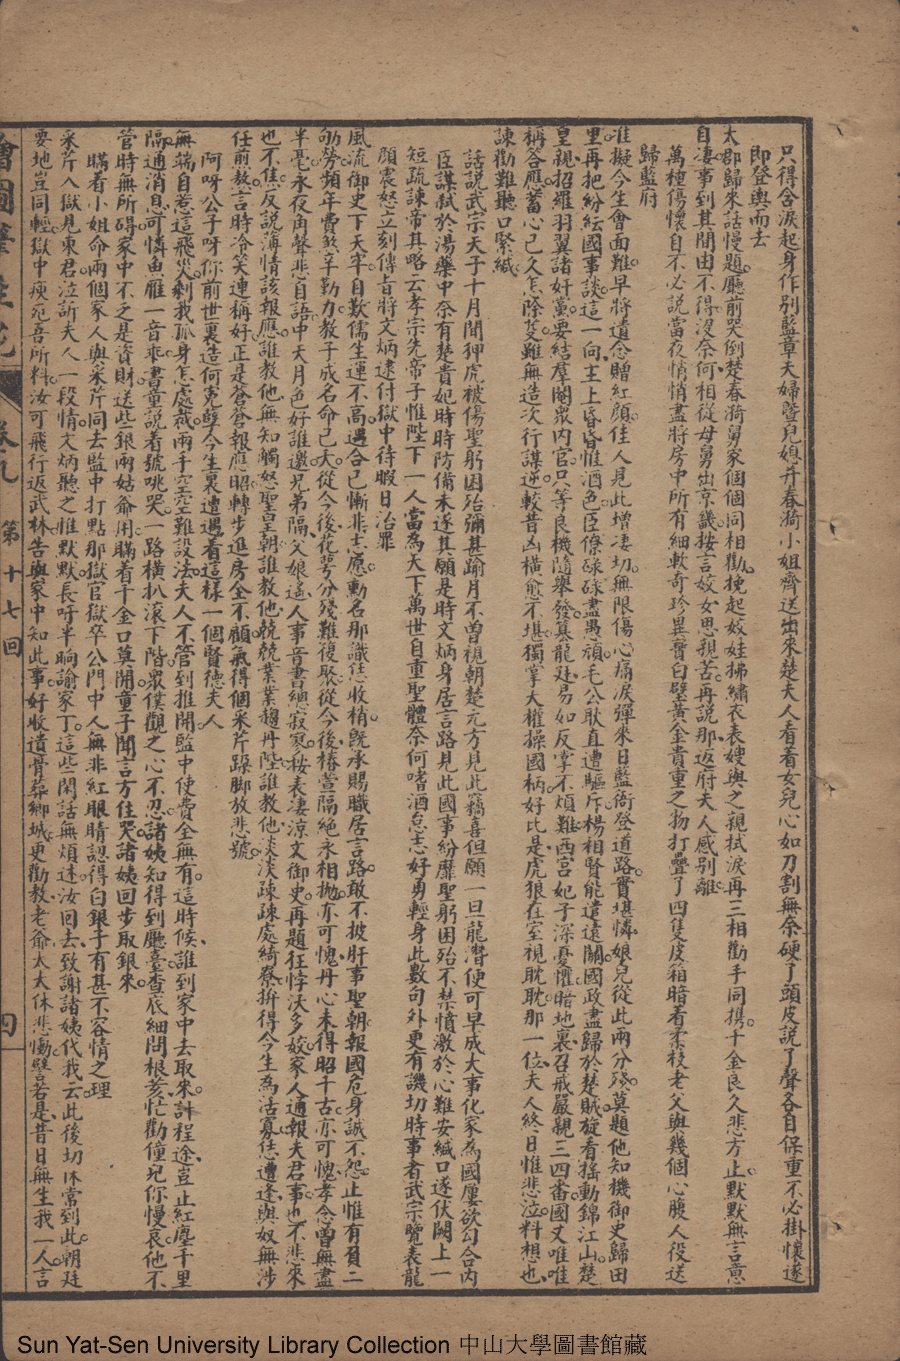 只得含淚起身作別藍章夫婦蘭兒媳幷春漪小姐齊送出來楚夫人看着女兒心如刀割無奈硬了頭皮說了聲各自保重不必掛懷遂
即登輿而去
太郡歸來話慢題廳前哭倒楚春漪舅家個個同相勸挽起奴娃拂繡衣表嫂與之親拭淚再三相勸手同携千金良久悲方止默默無言意
自淒事到其間由不得沒奈何相從母舅出京議按言姣女思親苦再說那返府夫人感別離
萬種傷懷自不必說當夜悄悄盡將房中所有細軟奇珍異寶白璧黃金貴重之物打疊了四隻皮箱暗着柔枝老父與幾個心腹人役送
歸藍府
准擬今生會面難早將遺念贈紅顏佳人見此增淒切無限傷心痛淚彈來日藍衙登道路實堪憐娘兒從此兩分殘莫題他知機御史歸田
里再把紛紜國事談這一向主上昏昏惟酒色臣僚碌碌盡愚頑毛公耿直遭驅斥楊相賢能遣遠關國政盡歸於楚賊旋看搖動錦江山楚
皇親招羅羽翼諸奸黨要結羣閹衆內官只等良機隨舉發篡龍廷易如反掌不煩難西宮妃子深憂懼暗地裏召戒嚴親三四番國丈唯唯
稱答應蓄心已久怎除芟雖無造次行謀逆較昔凶橫愈不堪獨掌大權操國柄好比是虎狼在室視耽耽那一位夫人終日惟悲泣料想也
諫勸難聽口緊緘
話說武宗天子于十月間狎虎被傷聖躬困殆彌甚踰月不曾視朝楚元方見此竊喜但願一旦龍潛便可早成大事化家為國屢欲勾合內
臣謀弒於湯藥中奈有楚貴妃時時防備未遂其願是時文炳身居言路見此國事紛靡聖躬困殆不禁憤激於心難安緘口遂伏闕上一
短疏諫帝其略云孝宗先帝子惟陛下一人當為天下萬世自重聖體奈何嗜酒怠志好勇輕身此數句外更有譏切時事者武宗覽表龍
顏震怒立刻傳旨將文炳逮付獄中待暇日治罪
風流御史下天牢自歎儒生運不高遇合已慚非志愿勳名那識恁收梢旣承賜職居言路敢不披肝事聖朝報國危身誠不怨止惟有負二
劬勞頻年費煞辛勤力教子成名命已夭從今後花萼分殘難復聚從今後椿萱隔絕永相拋亦可愧丹心未得昭千古亦可愧孝念曾無盡
半毫永夜角聲悲自語中天月色好誰邀兄弟隔父娘遙人事音書總寂寥按表淒涼文御史再題狂悖沃多姣家人通報夫君事也不悲來
也不焦反說薄情該報應誰教他無知觸怒聖皇朝誰教他兢兢業業趨丹陛誰教他淡淡疎疎處綺寮拚得今生為活寡恁遭逢與奴無涉
任前熬言時冷笑連稱好正是蒼蒼報應昭轉步進房全不顧氣得個釆芹跺脚放悲號
阿呀公子呀你前世裏造何寃孽今生裏遭遇着這樣一個賢德夫人
無端自惹這飛災剩我孤身怎處裁兩手空空難設法夫人不管到推開監中使費全無有這時候誰到家中去取來計程途豈止紅塵千里
隔通消息可憐魚雁一音乖書童說着號咷哭一路橫扒滾下階衆僕觀之心不忍諸姨知得到廳臺查底細問根荄忙勸僮兒你慢哀他不
管時無所碍家中不乏是資財送些銀兩姑爺用瞞着千金口莫開童子聞言方住哭諸姨回步取銀來
瞞着小姐命兩個家人與釆芹同去監中打點那獄官獄卒公門中人無非紅眼睛認得白銀子有甚不容情之理
釆芹入獄見東君泣訴夫人一段情文炳聽之惟默默長吁半晌諭家丁這些閑話無煩述汝回去致謝諸姨代我云此後切休常到此朝廷
要地豈同輕獄中瘐寃吾所料汝可飛行返武林告與家中知此事好收遺骨葬鄉城更勸教老爺太太休悲慟譬若是昔日無生我一人言
繪圖筆生花 卷九 第十七回 四
Sun Yat-Sen University Library Collection 中山大學圖書館藏